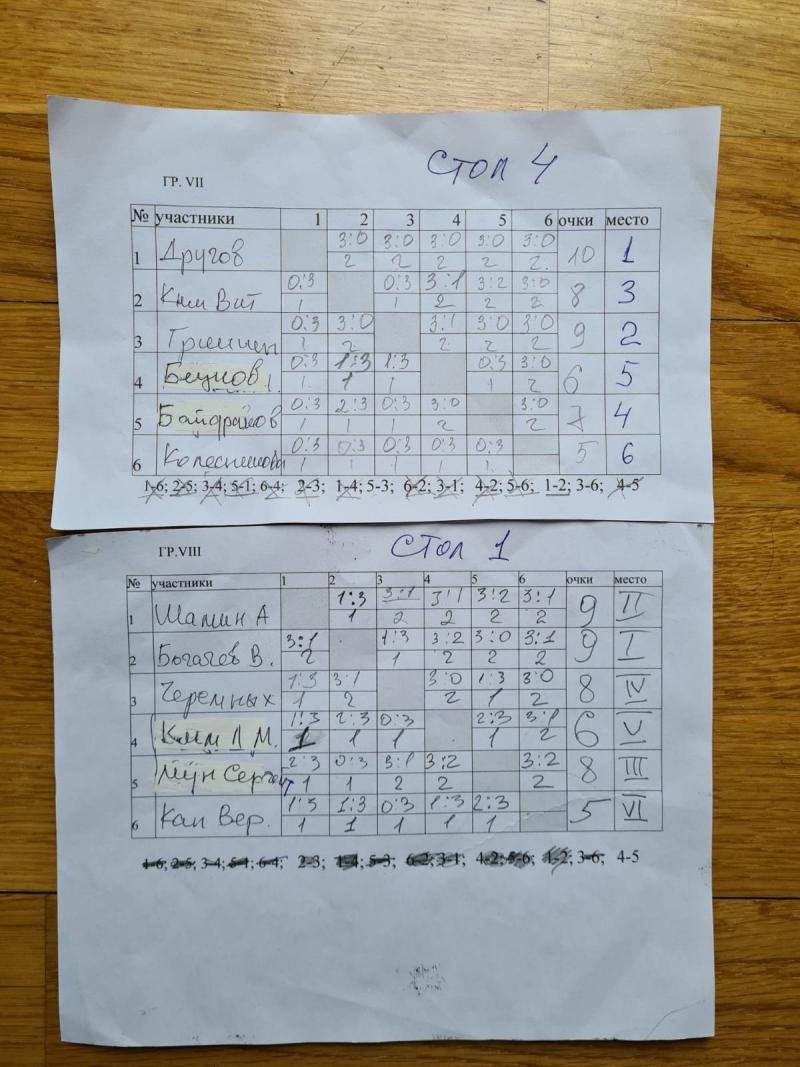 СТОЛ 4
ГР. VII
№ участники 1 2 3 4 5 6 очки место
3:0 3:0 3:0 3:0 3:0
1 Другов 2 2 2 2 2 10 1
0:3 0:3 3:1 3:2 3:0
2 Ким Вит 1 1 2 2 2 8 3
0:3 3:0 3:1 3:0 3:0
3 1 2 2 2 2 9 2
0:3 1:3 1:3 0:3 3:0
4 1 1 1 1 2 6 5
0:3 2:3 0:3 3:0 3:0
5 1 1 1 2 2 7 4
0:3 0:3 0:3 0:3 0:3
6 Колесникова 1 1 1 1 1 5 6
1-6; 2-5; 3-4; 5-1; 6-4; 2-3; 1-4; 5-3; 6-2; 3-1; 4-2; 5-6; 1-2; 3-6; 4-5
СТОЛ 1
ГР.VIII
№ участники 1 2 3 4 5 6 очки место
1:3 3:1 3:1 3:2 3:1
1 Шамин А 1 2 2 2 2 9 II
3:1 1:3 3:2 3:0 3:1
2 Богачев В. 2 1 2 2 2 9 I
1:3 3:1 3:0 1:3 3:0
3 Черемных 1 2 2 1 2 8 IV
1:3 2:3 0:3 2:3 3:1
4 Ким Л М. 1 1 1 1 2 6 V
2:3 0:3 3:1 3:2 3:2
5 Мун Сергей 1 1 2 2 2 8 III
1:3 1:3 0:3 1:3 2:3
6 Кан Вер. 1 1 1 1 1 5 VI
1-6; 2-5; 3-4; 5-1; 6-4; 2-3; 1-4; 5-3; 6-2; 3-1; 4-2; 5-6; 1-2; 3-6; 4-5